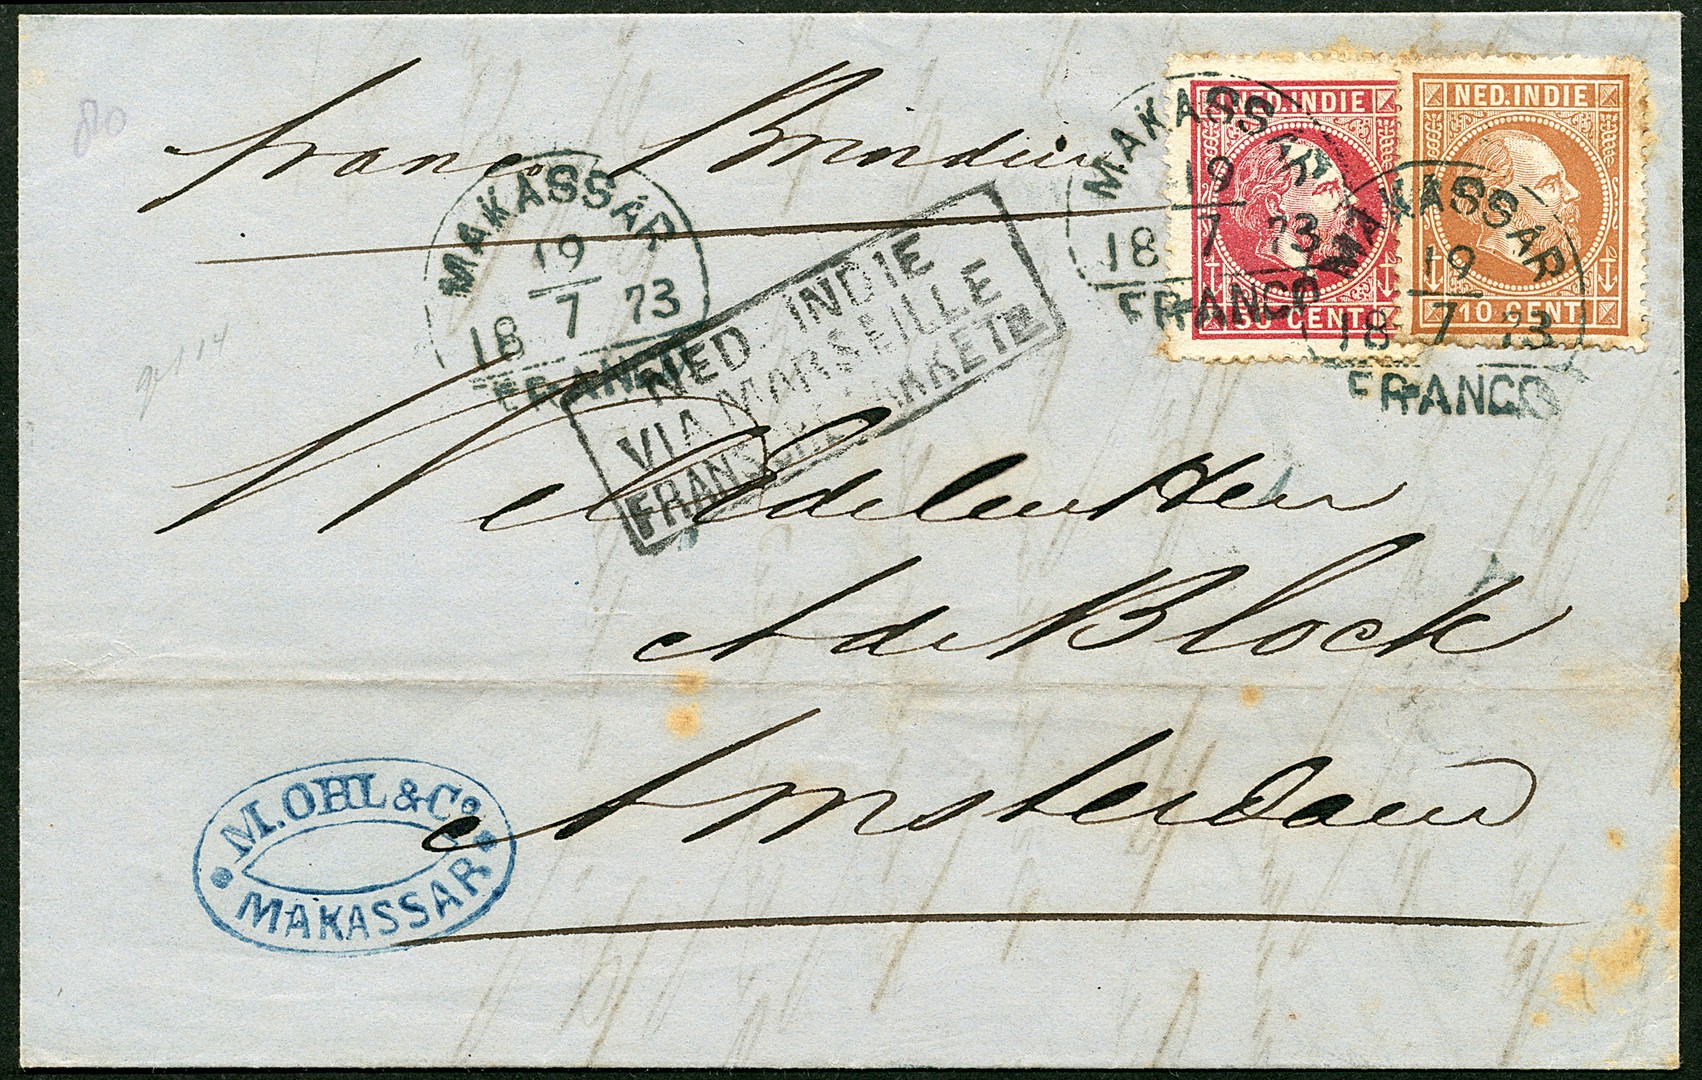 80
franco Brindisi
MAKASSAR
19
7
18 73
FRANCO
NED. INDIE
VIA MARSEILLE
FRANSCHE PAKKETN
NED. INDIE
50 CENT
MAKASSAR
19
7
18 73
FRANCO
NED. INDIE
10 CENT
MAKASSAR
19
7
18 73
FRANCO
WelEdelen Heer
A de Block
Amsterdam
M. OHL & Co.
MAKASSAR